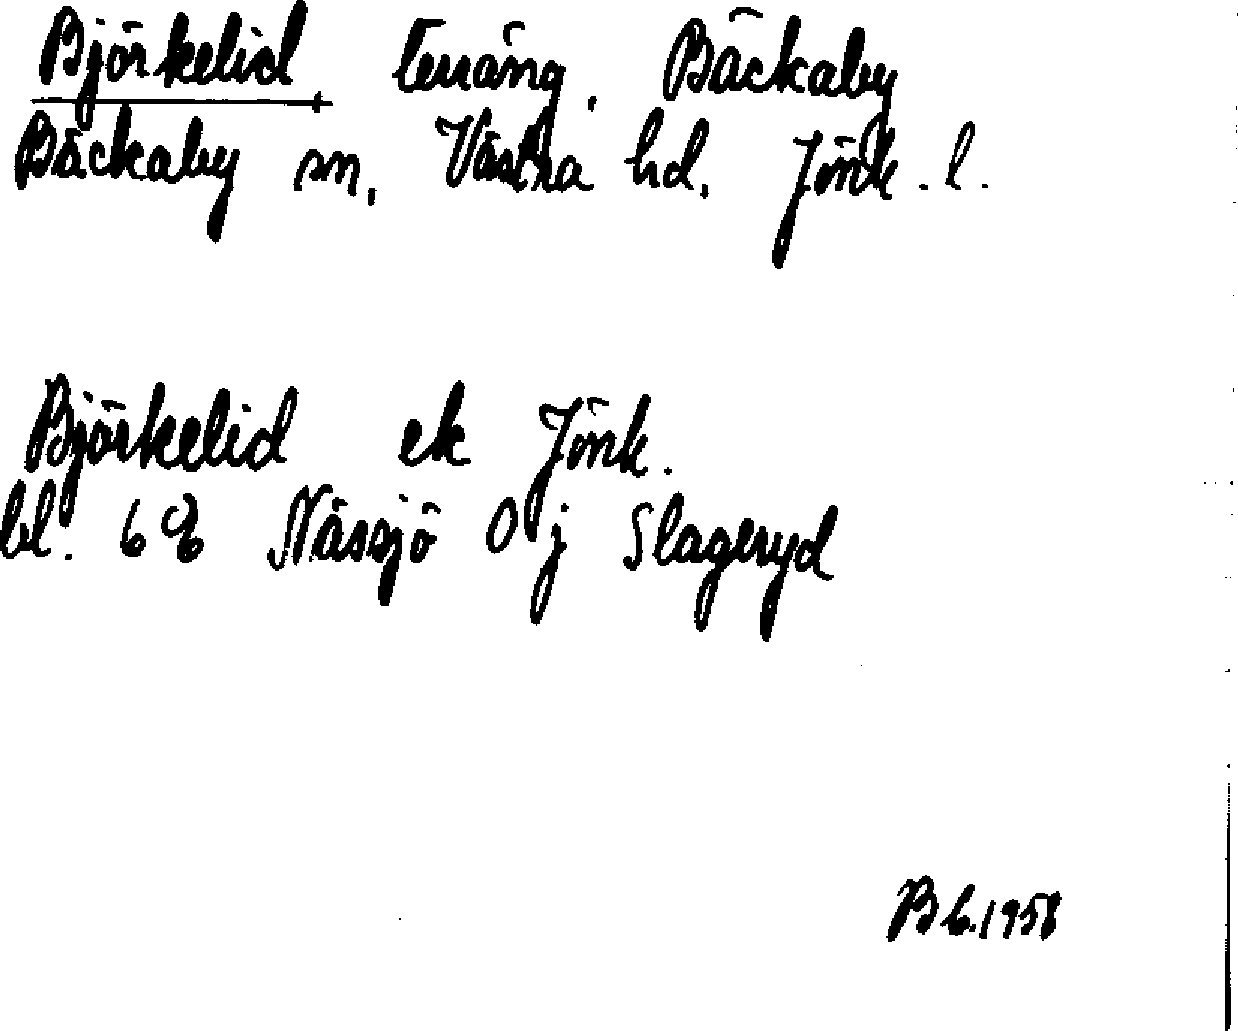 Björkelid terräng. Bäckaby
Bäckaby sn, Västra hd, Jönk. l.
Björkelid ek Jönk.
bl. 68 Nässjö 0 j Slageryd
Bb. 1958